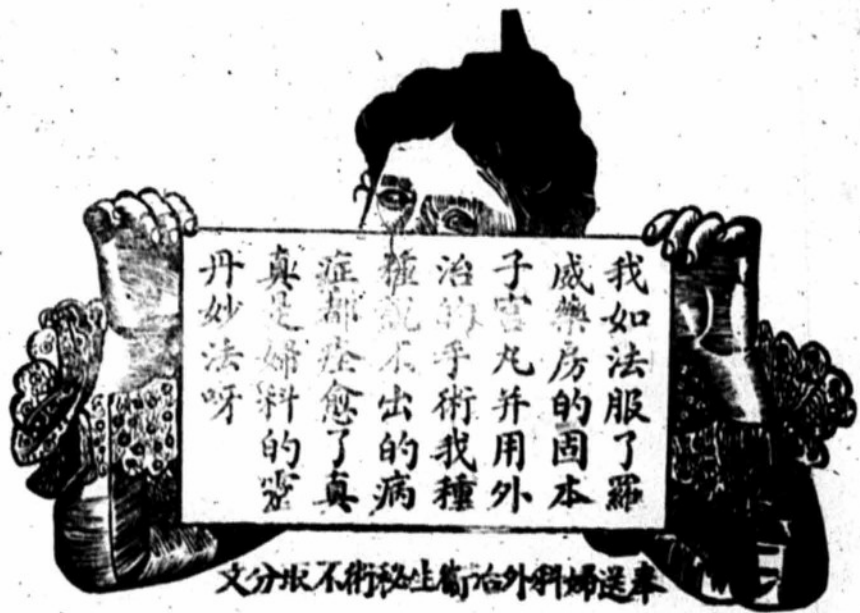 我如法服了羅
威藥房的固本
子宮丸并用外
治的手術我種
種說不出的病
症都痊愈了真
真是婦科的靈
丹妙法呀
奉送婦科外治衞生秘術不收分文